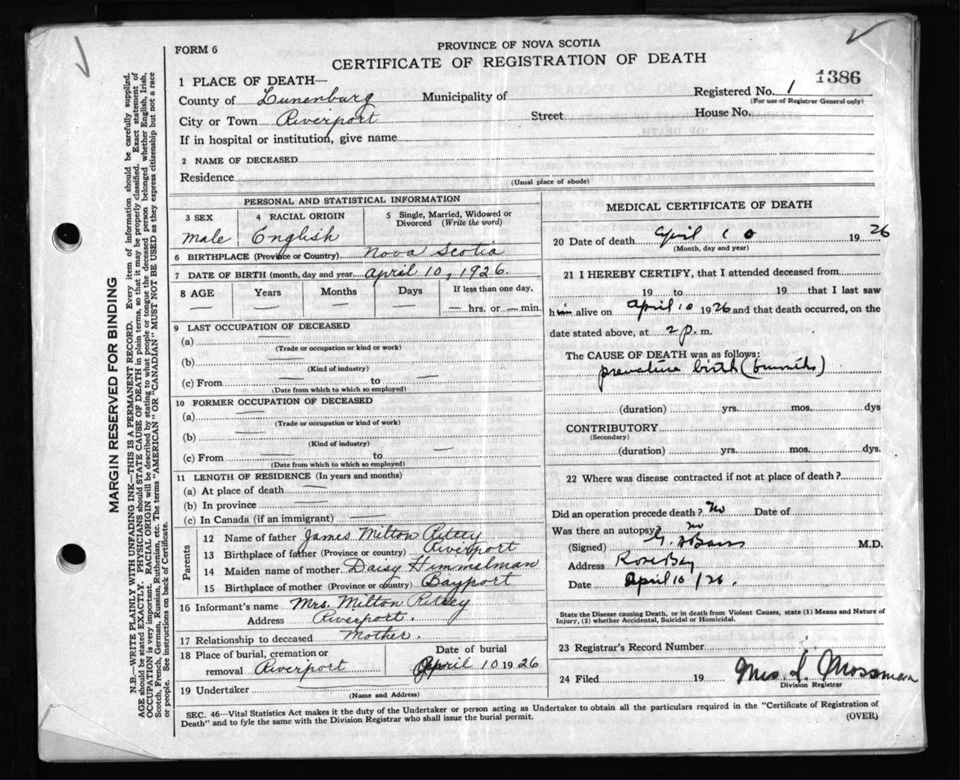 FORM 6
PROVINCE OF NOVA SCOTIA
CERTIFICATE OF REGISTRATION OF DEATH
1386
1 PLACE OF DEATH—
County of Lunenburg Municipality of
Registered No. 1
(For use of Registrar General only)
City or Town Riverport Street House No.
If in hospital or institution, give name
2 NAME OF DECEASED
Residence
(Usual place of abode)
PERSONAL AND STATISTICAL INFORMATION
3 SEX 4 RACIAL ORIGIN 5 Single, Married, Widowed or Divorced (Write the word)
Male English
6 BIRTHPLACE (Province or Country) Nova Scotia
7 DATE OF BIRTH (month, day and year) April 10, 1926.
8 AGE Years Months Days If less than one day,
— — — — hrs. or — min.
9 LAST OCCUPATION OF DECEASED
(a) —
(Trade or occupation or kind or work)
(b) —
(Kind of industry)
(c) From — to —
(Date from which to which so employed)
10 FORMER OCCUPATION OF DECEASED
(a) —
(Trade or occupation or kind of work)
(b) —
(Kind of industry)
(c) From — to —
(Date from which to which so employed)
11 LENGTH OF RESIDENCE (In years and months)
(a) At place of death —
(b) In province —
(c) In Canada (if an immigrant) —
Parents
12 Name of father James Milton Ritcey
13 Birthplace of father (Province or country) Riverport
14 Maiden name of mother Daisy Himmelman
15 Birthplace of mother (Province or country) Bayport
16 Informant's name Mrs. Milton Ritcey
Address Riverport.
17 Relationship to deceased Mother.
18 Place of burial, cremation or removal Riverport
Date of burial April 10 1926
19 Undertaker
(Name and Address)
MEDICAL CERTIFICATE OF DEATH
20 Date of death April 10 1926
(Month, day and year)
21 I HEREBY CERTIFY, that I attended deceased from
19 to 19 that I last saw
him alive on April 10 1926 and that death occurred, on the
date stated above, at 2 p. m.
The CAUSE OF DEATH was as follows:
premature birth
(duration) yrs. mos. dys
CONTRIBUTORY
(Secondary)
(duration) yrs. mos. dys.
22 Where was disease contracted if not at place of death?
Did an operation precede death? No Date of
Was there an autopsy? no
(Signed) M.D.
Address Rose Bay
Date April 10/26.
State the Disease causing Death, or in death from Violent Causes, state (1) Means and Nature of
Injury, (2) whether Accidental, Suicidal or Homicidal.
23 Registrar's Record Number
24 Filed 19 Mrs. S. Mossman
Division Registrar
SEC. 46—Vital Statistics Act makes it the duty of the Undertaker or person acting as Undertaker to obtain all the particulars required in the "Certificate of Registration of
Death" and to fyle the same with the Division Registrar who shall issue the burial permit.
(OVER)
MARGIN RESERVED FOR BINDING
N.B.—WRITE PLAINLY WITH UNFADING INK—THIS IS A PERMANENT RECORD. Every item of information should be carefully supplied.
AGE should be stated EXACTLY. PHYSICIANS should STATE CAUSE OF DEATH in plain terms, so that it may be properly classified. Exact statement of
OCCUPATION is very important. RACIAL ORIGIN will be described by stating to what people or tongue the deceased person belonged whether English, Irish,
Scotch, French, German, Russian, Ruthenian, etc. The terms "AMERICAN" OR "CANADIAN" MUST NOT BE USED as they express citizenship but not a race
or people. See instructions on back of Certificate.